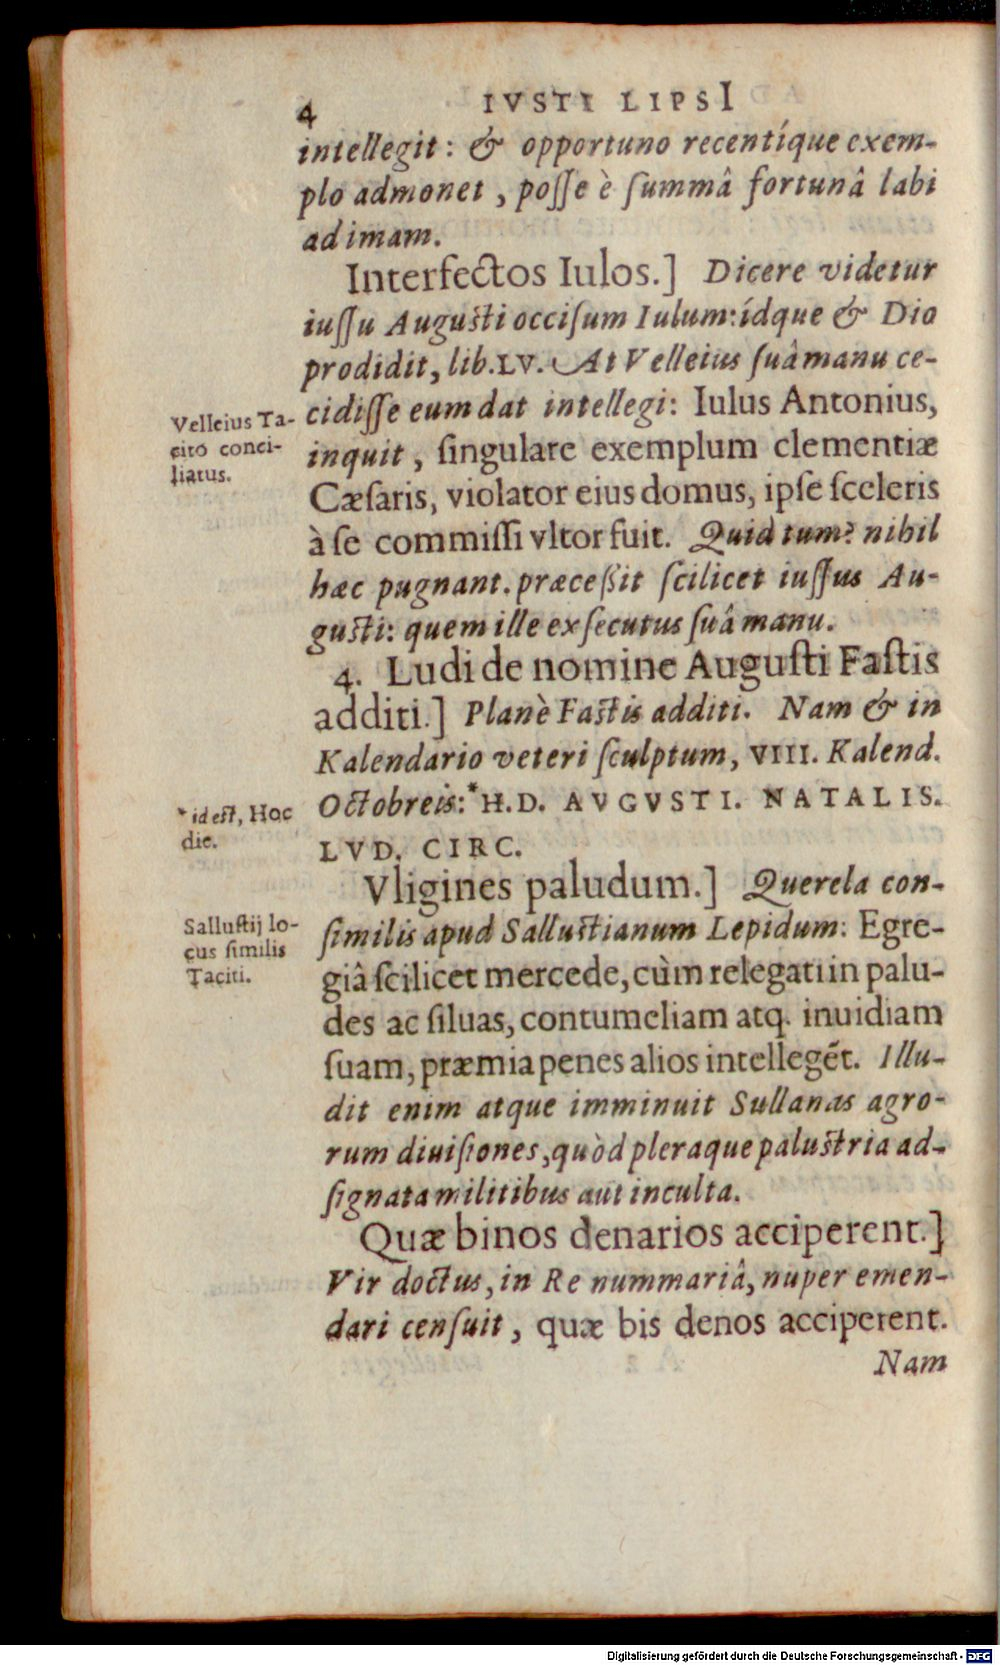 4 IVSTI LIPSI
intellegit: & opportuno recentíque exem-
plo admonet, posse è summâ fortunâ labi
ad imam.
Interfectos Iulos.] Dicere videtur
iussu Augusti occisum Iulum: ídque & Dio
prodidit, lib. LV. At Velleius suâ manu ce-
cidisse eum dat intellegi: Iulus Antonius,
inquit, singulare exemplum clementiæ
Cæsaris, violator eius domus, ipse sceleris
à se commissi vltor fuit. Quid tum? nihil
hæc pugnant. præceßit scilicet iussus Au-
gusti: quem ille exsecutus suâ manu.
Velleius Ta-
cito conci-
liatus.
4. Ludi de nomine Augusti Fastis
additi.] Planè Fastis additi. Nam & in
Kalendario veteri sculptum, VIII. Kalend.
Octobreis: *H.D. AVGVSTI. NATALIS.
LVD. CIRC.
* id est, Hoc
die.
Vligines paludum.] Querela con-
similis apud Sallustianum Lepidum: Egre-
giâ scilicet mercede, cùm relegati in palu-
des ac siluas, contumeliam atq. inuidiam
suam, præmia penes alios intellegẽt. Illu-
dit enim atque imminuit Sullanas agro-
rum diuisiones, quòd pleraque palustria ad-
signata militibus aut inculta.
Sallustij lo-
cus similis
Taciti.
Quæ binos denarios acciperent.]
Vir doctus, in Re nummariâ, nuper emen-
dari censuit, quæ bis denos acciperent.
Nam
Digitalisierung gefördert durch die Deutsche Forschungsgemeinschaft - DFG